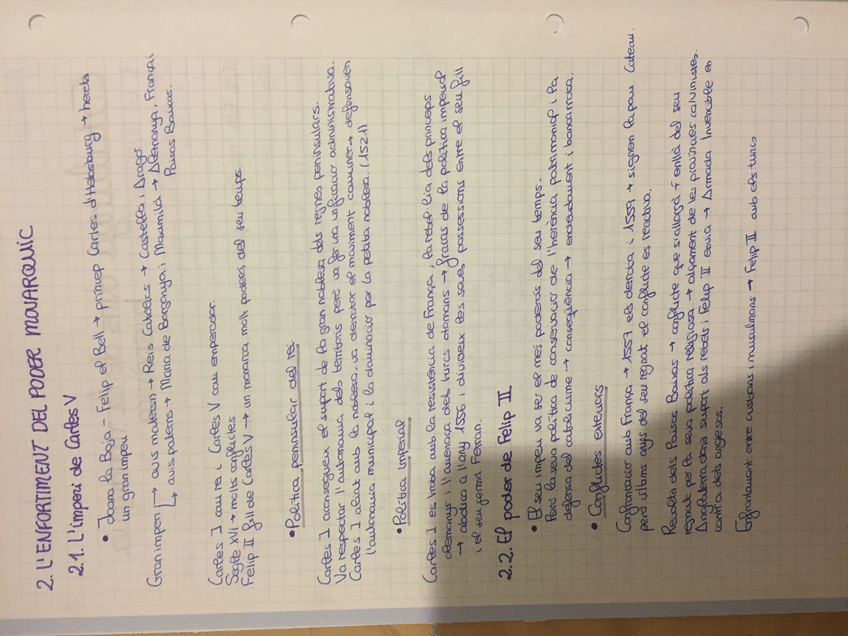 2. L'ENFORTIMENT DEL PODER MONÀRQUIC
2.1. L'imperi de Carles V
• Joana la Boja - Felip el Bell → príncep Carles d'Habsburg → hereta
un gran imperi
Gran imperi → avis materns → Reis Catòlics → Castella i Aragó
↳ avis paterns → Maria de Borgonya i Maximilà → Alemanya, França i
Països Baixos.
Carles I com rei i Carles V com emperador.
Segle XVI → molts conflictes
Felip II fill de Carles V → un monarca molt poderós del seu temps.
• Política peninsular del rei
Carles I aconsegueix el suport de la gran noblesa dels regnes peninsulars.
Va respectar l'autonomia dels territoris però va fer una unificació administrativa.
Carles I aliat amb la noblesa, va derrotar el moviment comuner → defensaven
l'autonomia municipal i la dominació per la petita noblesa. (1521)
• Política imperial
Carles I es troba amb la resistència de França, la rebel·lia dels prínceps
alemanys i l'amenaça dels turcs otomans → fracàs de la política imperial
→ abdica a l'any 1556 i divideix les seves possessions entre el seu fill
i el seu germà Ferran.
2.2. El poder de Felip II
• El seu imperi va ser el més poderós del seu temps.
Però la seva política de conservació de l'herència patrimonial i la
defensa del catolicisme → conseqüència → endeutament i bancarrota.
• Conflictes exteriors
Confrontació amb França → 1557 els derrota i 1559 → signen la pau Cateau.
però últims anys del seu regnat el conflicte es reactiva.
Revolta dels Països Baixos → conflicte que s'allargà + enllà del seu
regnat per la seva política religiosa → alçament de les províncies calvinistes.
Anglaterra dona suport als rebels i Felip II envia → Armada Invencible en
contra dels anglesos.
Enfrontament entre cristians i musulmans → Felip II amb els turcs